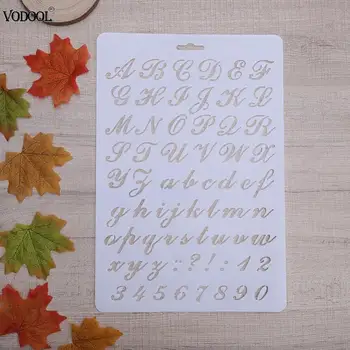 VODOOL
A B C D E F
G H I J K L
M N O P Q R
S T U V W X
Y Z a b c d e f
g h i j k l m n
o p q r s t u v w
x y z : ? ! : 1 2
3 4 5 6 7 8 9 0